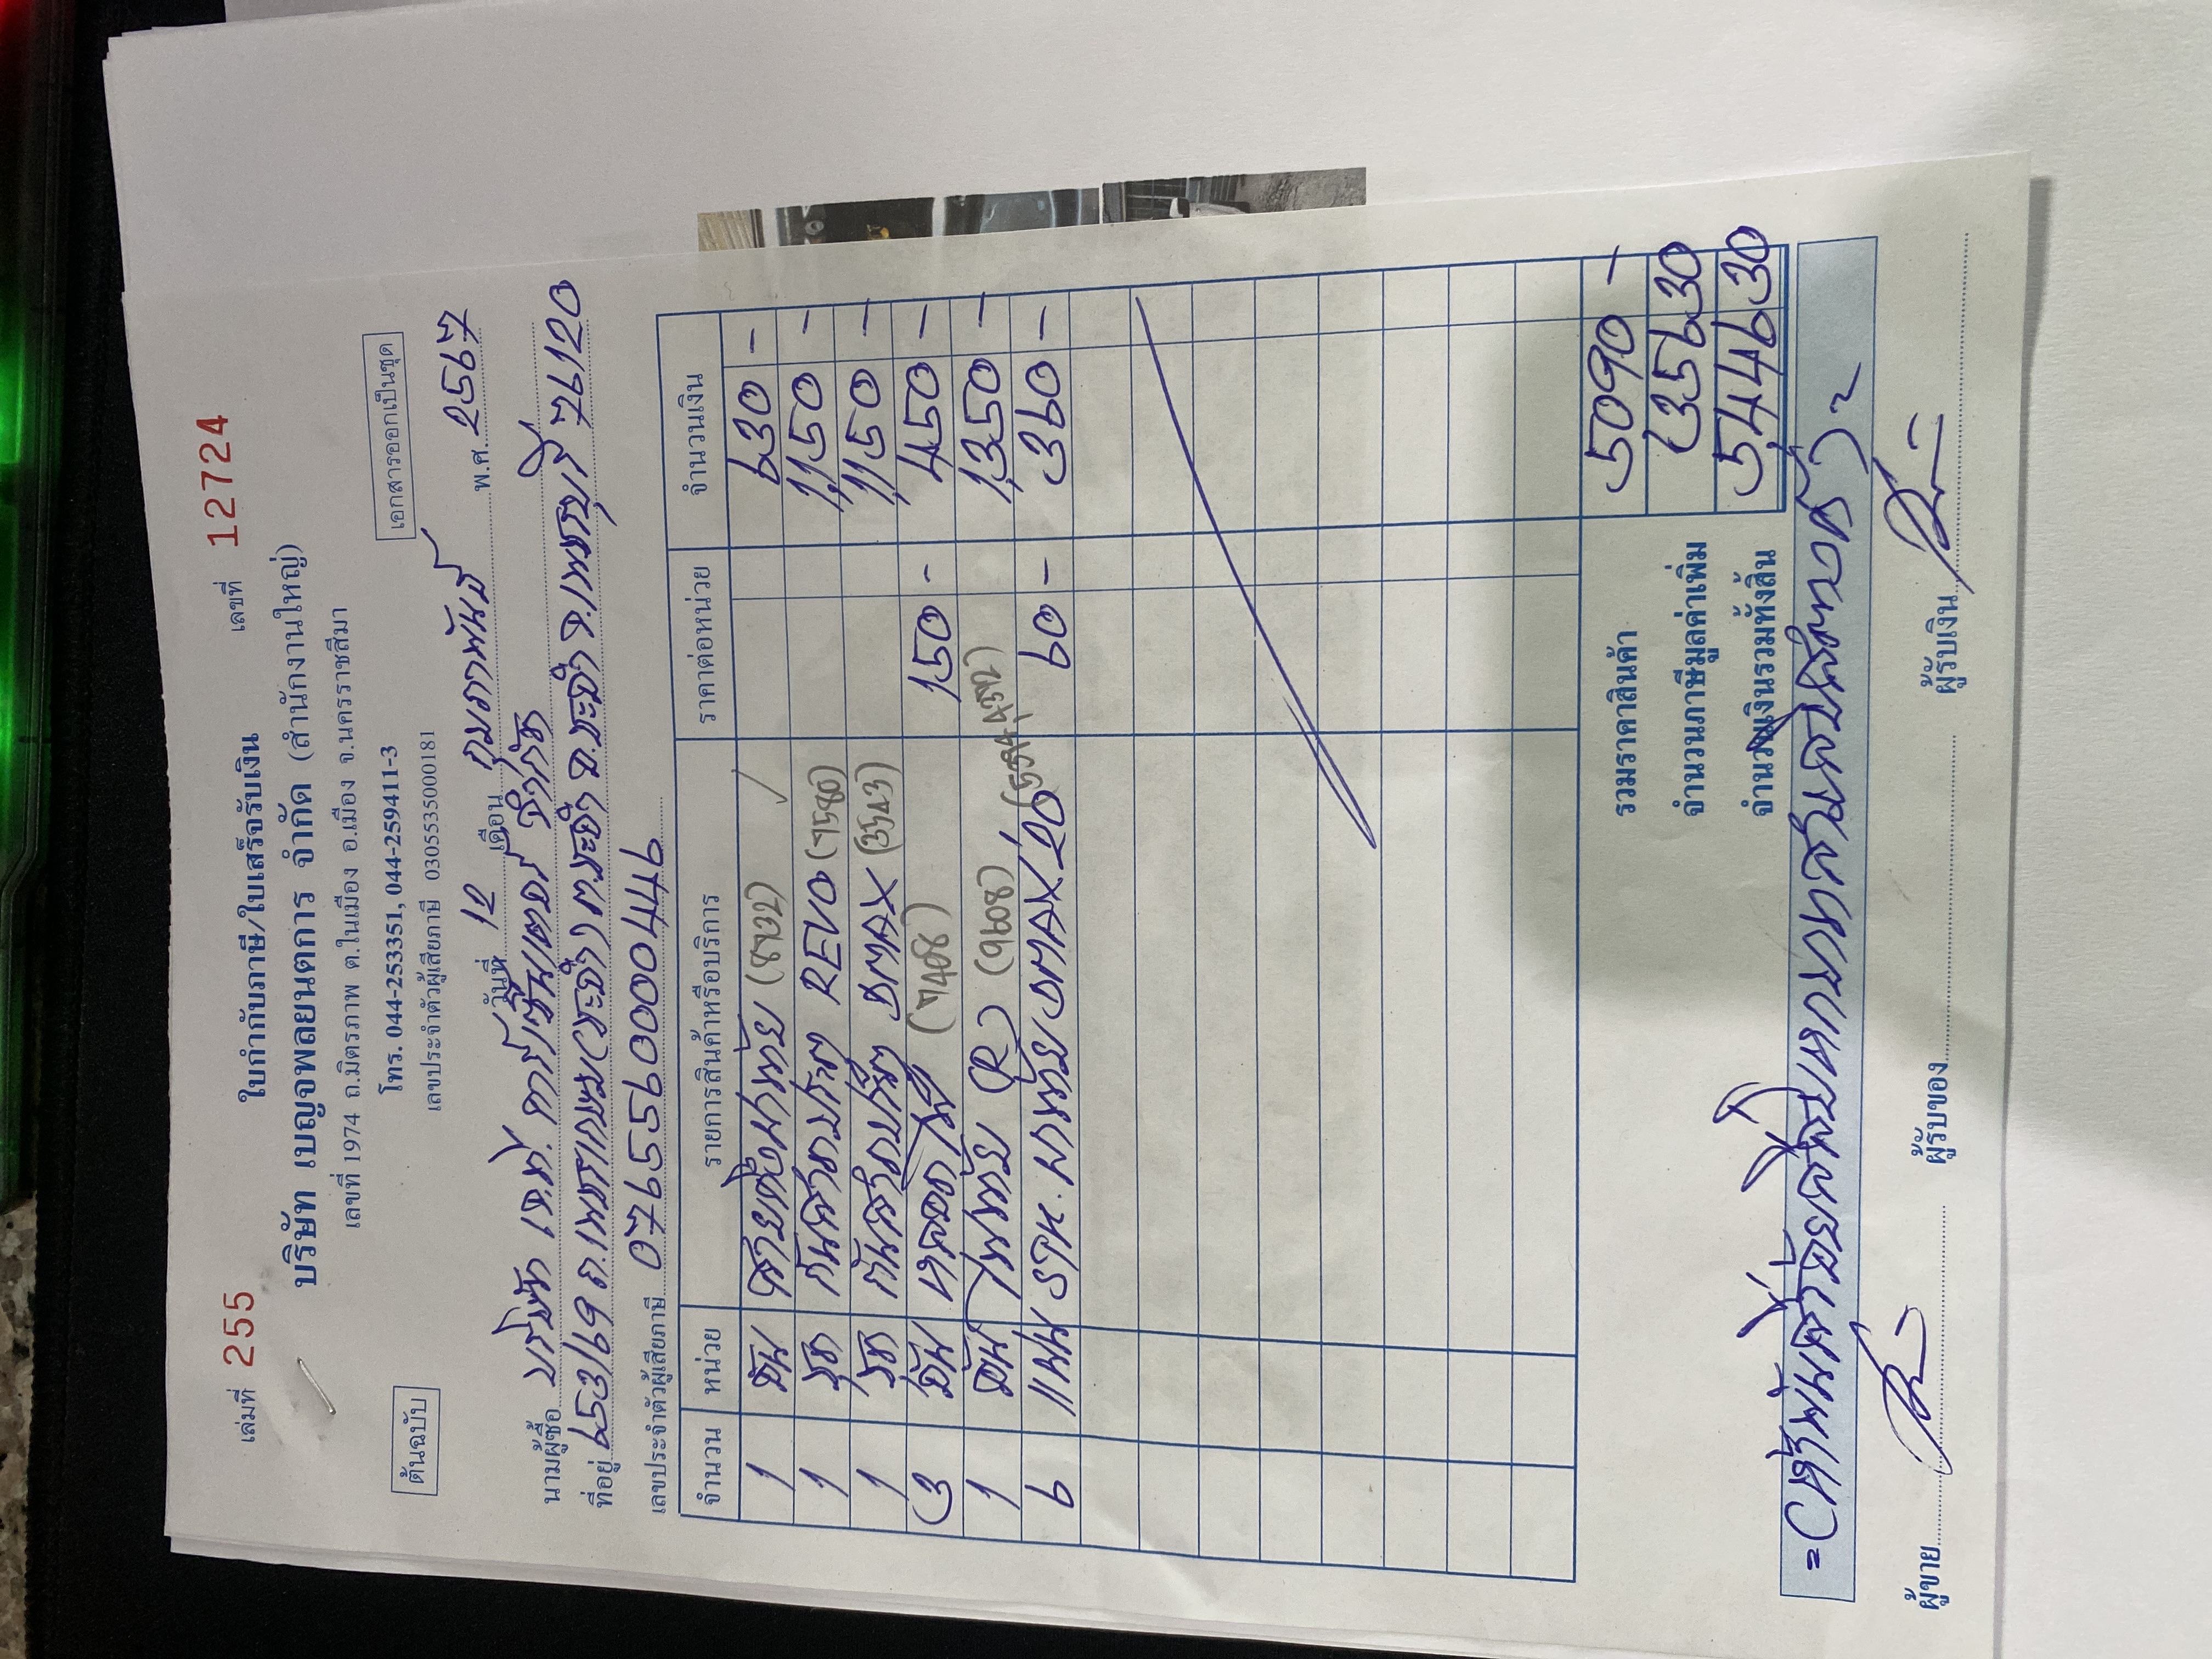 เล่มที่ 255 ใบกำกับภาษี/ใบเสร็จรับเงิน เลขที่ 12724
บริษัท เบญจพลยนตการ จำกัด (สำนักงานใหญ่)
เลขที่ 1974 ถ.มิตรภาพ ต.ในเมือง อ.เมือง จ.นครราชสีมา
โทร. 044-253351, 044-259411-3
เลขประจำตัวผู้เสียภาษี 0305535000181
ต้นฉบับ เอกสารออกเป็นชุด
วันที่ เดือน กุมภาพันธ์ พ.ศ. 2567
นามผู้ซื้อ บริษัท
ที่อยู่ ถ.เพชรเกษม ต.ชะอำ อ.ชะอำ จ.เพชรบุรี 76120
เลขประจำตัวผู้เสียภาษี 0765560000449
จำนวน หน่วย รายการสินค้าหรือบริการ ราคาต่อหน่วย จำนวนเงิน
1 อัน (8732) 630 -
1 ชุด กันสาด REVO (7580) 1,150 -
1 ชุด กันสาด DMAX (3543) 1,150 -
3 อัน (7408) 150 - 450 -
1 อัน ไฟท้าย (9608) 1,350 -
6 แผ่น STK. ฝาท้าย DMAX'20 60 - 360 -
รวมราคาสินค้า 5090 -
จำนวนภาษีมูลค่าเพิ่ม 356 30
จำนวนเงินรวมทั้งสิ้น 5,446 30
=(ห้าพันสี่ร้อยสี่สิบหกบาทสามสิบสตางค์)=
ผู้ขาย ผู้รับของ ผู้รับเงิน